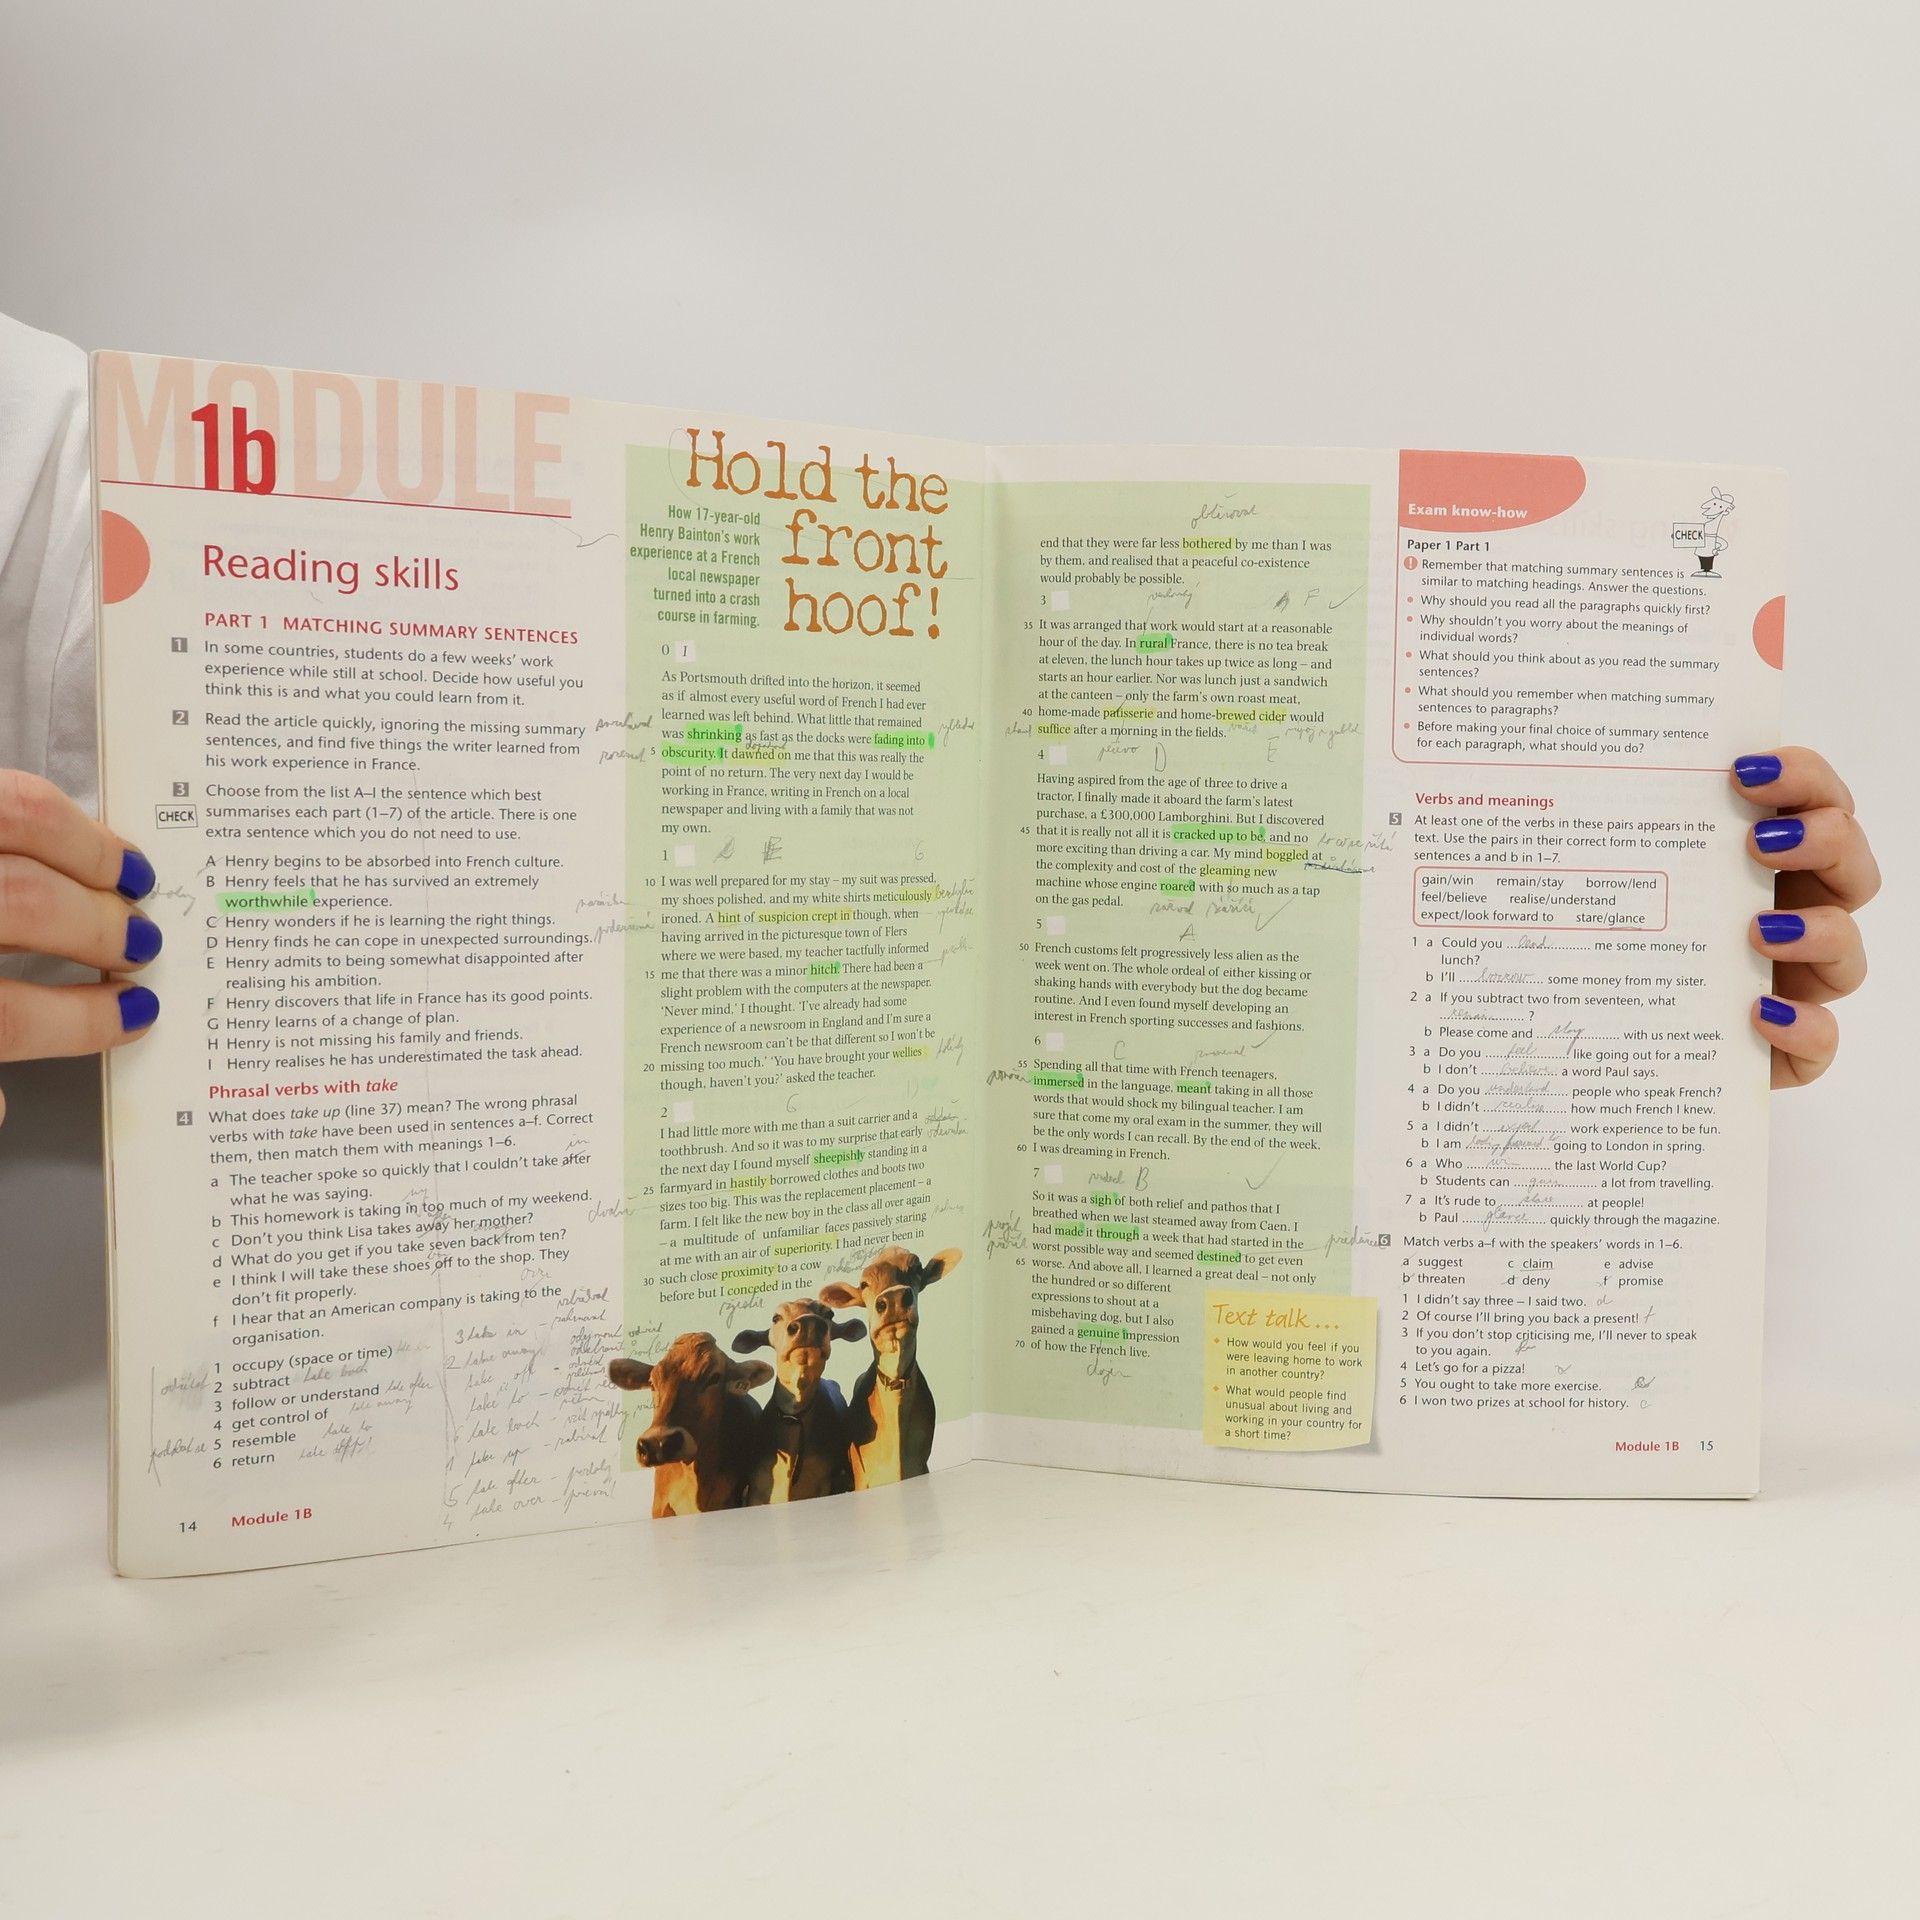 MODULE
1b
Reading skills
PART 1 MATCHING SUMMARY SENTENCES
1 In some countries, students do a few weeks' work
experience while still at school. Decide how useful you
think this is and what you could learn from it.
2 Read the article quickly, ignoring the missing summary
sentences, and find five things the writer learned from
his work experience in France.
3 Choose from the list A–I the sentence which best
CHECK summarises each part (1–7) of the article. There is one
extra sentence which you do not need to use.
A Henry begins to be absorbed into French culture.
B Henry feels that he has survived an extremely
worthwhile experience.
C Henry wonders if he is learning the right things.
D Henry finds he can cope in unexpected surroundings.
E Henry admits to being somewhat disappointed after
realising his ambition.
F Henry discovers that life in France has its good points.
G Henry learns of a change of plan.
H Henry is not missing his family and friends.
I Henry realises he has underestimated the task ahead.
Phrasal verbs with take
4 What does take up (line 37) mean? The wrong phrasal
verbs with take have been used in sentences a–f. Correct
them, then match them with meanings 1–6.
in
a The teacher spoke so quickly that I couldn't take after
what he was saying.
b This homework is taking in too much of my weekend.
c Don't you think Lisa takes away her mother?
d What do you get if you take seven back from ten?
e I think I will take these shoes off to the shop. They
don't fit properly.
f I hear that an American company is taking to the
organisation.
1 occupy (space or time)
2 subtract take back
3 follow or understand take after
4 get control of take away
5 resemble take to
6 return take off!
3 take in
2 take away
take off
take to
6 take back
1 take up
5 take after
4 take over
14 Module 1B
Hold the
front
hoof!
How 17-year-old
Henry Bainton's work
experience at a French
local newspaper
turned into a crash
course in farming.
0 I
As Portsmouth drifted into the horizon, it seemed
as if almost every useful word of French I had ever
learned was left behind. What little that remained
was shrinking as fast as the docks were fading into
5 obscurity. It dawned on me that this was really the
point of no return. The very next day I would be
working in France, writing in French on a local
newspaper and living with a family that was not
my own.
1
10 I was well prepared for my stay – my suit was pressed,
my shoes polished, and my white shirts meticulously
ironed. A hint of suspicion crept in though, when
having arrived in the picturesque town of Flers
where we were based, my teacher tactfully informed
15 me that there was a minor hitch. There had been a
slight problem with the computers at the newspaper.
'Never mind,' I thought. 'I've already had some
experience of a newsroom in England and I'm sure a
French newsroom can't be that different so I won't be
20 missing too much.' 'You have brought your wellies
though, haven't you?' asked the teacher.
2 G
I had little more with me than a suit carrier and a
toothbrush. And so it was to my surprise that early
the next day I found myself sheepishly standing in a
25 farmyard in hastily borrowed clothes and boots two
sizes too big. This was the replacement placement – a
farm. I felt like the new boy in the class all over again
– a multitude of unfamiliar faces passively staring
at me with an air of superiority. I had never been in
30 such close proximity to a cow
before but I conceded in the
end that they were far less bothered by me than I was
by them, and realised that a peaceful co-existence
would probably be possible.
3 F
35 It was arranged that work would start at a reasonable
hour of the day. In rural France, there is no tea break
at eleven, the lunch hour takes up twice as long – and
starts an hour earlier. Nor was lunch just a sandwich
at the canteen – only the farm's own roast meat,
40 home-made patisserie and home-brewed cider would
suffice after a morning in the fields.
4 D E
Having aspired from the age of three to drive a
tractor, I finally made it aboard the farm's latest
purchase, a £300,000 Lamborghini. But I discovered
45 that it is really not all it is cracked up to be, and no
more exciting than driving a car. My mind boggled at
the complexity and cost of the gleaming new
machine whose engine roared with so much as a tap
on the gas pedal.
5 A
50 French customs felt progressively less alien as the
week went on. The whole ordeal of either kissing or
shaking hands with everybody but the dog became
routine. And I even found myself developing an
interest in French sporting successes and fashions.
6 C
55 Spending all that time with French teenagers,
immersed in the language, meant taking in all those
words that would shock my bilingual teacher. I am
sure that come my oral exam in the summer, they will
be the only words I can recall. By the end of the week,
60 I was dreaming in French.
7 B
So it was a sigh of both relief and pathos that I
breathed when we last steamed away from Caen. I
had made it through a week that had started in the
worst possible way and seemed destined to get even
65 worse. And above all, I learned a great deal – not only
the hundred or so different
expressions to shout at a
misbehaving dog, but I also
gained a genuine impression
70 of how the French live.
Text talk...
• How would you feel if you
were leaving home to work
in another country?
• What would people find
unusual about living and
working in your country for
a short time?
Exam know-how
CHECK
Paper 1 Part 1
! Remember that matching summary sentences is
similar to matching headings. Answer the questions.
• Why should you read all the paragraphs quickly first?
• Why shouldn't you worry about the meanings of
individual words?
• What should you think about as you read the summary
sentences?
• What should you remember when matching summary
sentences to paragraphs?
• Before making your final choice of summary sentence
for each paragraph, what should you do?
Verbs and meanings
5 At least one of the verbs in these pairs appears in the
text. Use the pairs in their correct form to complete
sentences a and b in 1–7.
gain/win remain/stay borrow/lend
feel/believe realise/understand
expect/look forward to stare/glance
1 a Could you ... lend ... me some money for
lunch?
b I'll ... borrow ... some money from my sister.
2 a If you subtract two from seventeen, what
... remain ... ?
b Please come and ... stay ... with us next week.
3 a Do you ... feel ... like going out for a meal?
b I don't ... believe ... a word Paul says.
4 a Do you ... understand ... people who speak French?
b I didn't ... realise ... how much French I knew.
5 a I didn't ... expect ... work experience to be fun.
b I am ... looking forward to ... going to London in spring.
6 a Who ... the last World Cup?
b Students can ... gain ... a lot from travelling.
7 a It's rude to ... stare ... at people!
b Paul ... glance ... quickly through the magazine.
6 Match verbs a–f with the speakers' words in 1–6.
a suggest c claim e advise
b threaten d deny f promise
1 I didn't say three – I said two. d
2 Of course I'll bring you back a present! f
3 If you don't stop criticising me, I'll never to speak
to you again.
4 Let's go for a pizza! a
5 You ought to take more exercise.
6 I won two prizes at school for history. c
Module 1B 15